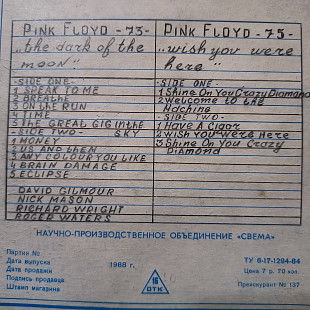 PINK FLOYD -73-
„the dark of the
moon"
-SIDE ONE-
1 SPEAK TO ME
2 BREATHE
3 ON THE RUN
4 TIME
5 THE GREAL GIG IN THE
-SIDE TWO- SKY
1 MONEY
2 US AND THEM
3 ANY COLOUR YOU LIKE
4 BRAIN DAMAGE
5 ECLIPSE
DAVID GILMOUR
NICK MASON
RICHARD WRIGHT
ROGER WATERS
PINK FLOYD -75-
„wish you were
here"
-SIDE ONE-
1 Shine On You Crazy Diamond
2 Welcome to the
Machine
-SIDE TWO-
1 Have A Cigar
2 Wish You Were Here
3 Shine On You Crazy
Diamond
НАУЧНО-ПРОИЗВОДСТВЕННОЕ ОБЪЕДИНЕНИЕ «СВЕМА»
Партия №
Дата выпуска 1988 г.
Дата продажи
Подпись продавца
Штамп магазина
16
ОТК
ТУ 6-17-1294-84
Цена 7 р. 70 коп
Прейскурант № 137